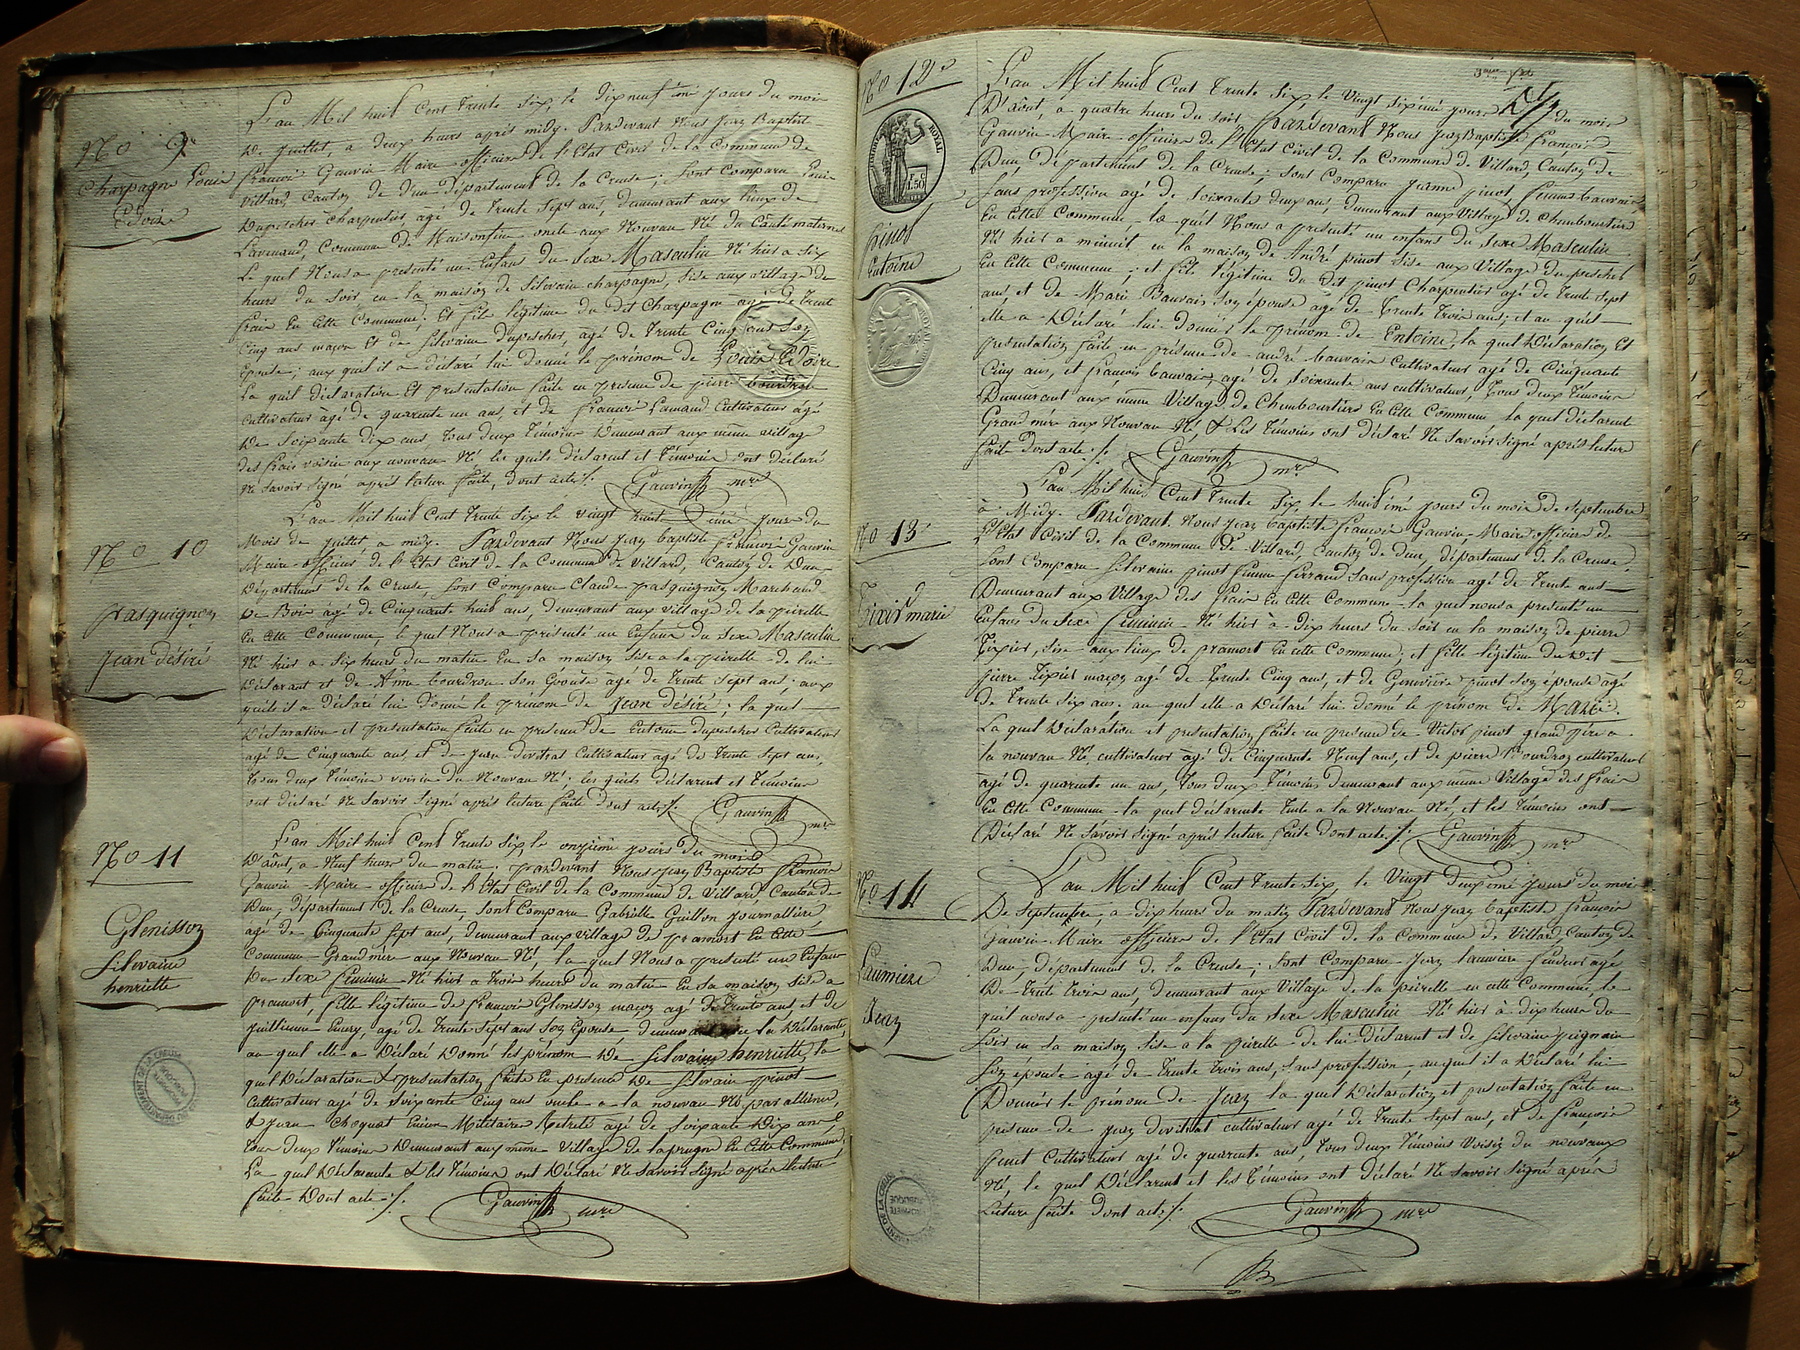 No 9e
Charpagne Louis
Edoire
L'an Mil huit Cent Trente Six, le dix neuf ime jours du mois
De juillet, a deux heurs après midy. Pardevant Nous Jean Baptiste
françois Gauvin Maire officier de l'Etat Civil de la Commune de
Villard, Canton de Dun, département de la Creuse; sont Comparu Louis
Dupeschez Charpentier âgé de Trente Sept ans, demeurant aux lieux de
Commune de Maisonfeine oncle aux Nouveau Né du Cauté maternel
Le quel Nous a presenté un Enfans du Sexe Masculin Né hier a Six
heurs du Soir en la maison de Silvain Charpagne, Sise aux village de
frais En Cette Commune; Et fils légitime du dit Charpagne agé de Trent
Cinq ans maçon Et de Silvaine Dupeschez, agé de Trente Cinq ans Son
Epouse; aux quel il a déclaré lui donné le prénom de Louis Edoire
La quel déclaration Et presentation faite en presence de pierre bourdron
Cultivateur âgé de quarente un ans, et de françois Lamaud Cultivateur âgé
De Soixante dix ans, tous deux Témoins Demeurant aux même village
des frais voisin aux nouveau Né les quels déclarent et Témoins ont déclaré
Ne Savoir Signé après lecture faite, dont acte ./.
Gauvin mre
No 10
pasquignon
Jean désiré
L'an Mil huit Cent Trente Six le vingt huit ime jours du
Mois de juillet, a midy. Pardevant Nous Jean baptiste françois Gauvin
Maire officier de l'Etat Civil de la Commune de Villard, Canton de Dun
Département de la Creuse, Sont Comparu Claude pasquignon Marchand
De Bois agé de Cinquante huit ans, demeurant aux village de la peirelle
En Cette Commune le quel Nous a présenté un Enfans du Sexe Masculin
Né hier a Six heurs du matin En Sa maison Sise a la peirelle de lui
Déclarant et de Anne bourdron Son Epouse agé de Trente Sept ans; aux
quels il a déclaré lui donné le prénom de Jean désiré; la quel
Déclaration et presentation faite en presence de Entoine dupeschez Cultivateur
agé de Cinquante ans, et de Jean divitiat Cultivateur agé de Trente Sept ans,
Tous deux Témoins voisin du Nouveau Né. les quels déclarent et Témoins
ont déclaré Ne Savoir Signé après lecture faite dont acte ./.
Gauvin mre
No 11
Glenisson
Silvaine
henriette
L'an Mil huit Cent Trente Six, le onzieme jours du mois
D'août, a Neuf heurs du matin. pardevant Nous Jean Baptiste françois
Gauvin Maire officier de l'Etat Civil de la Commune de Villard, Canton de
Dun, Département de la Creuse, Sont Comparu Gabrielle Guillon journallière
agé de Cinquante Sept ans, demeurant aux village de pramort En Cette
Commune Grand mère aux Nouveau Né, la quel Nous a presenté un Enfans
Du Sexe feminin Né hier a Trois heurs du matin En Sa maison Sise a
pramort, fille légitime de françois Glenisson maçon agé de Trente ans, et de
Emery, agé de Trente Sept ans Son Epouse, la Déclarante,
au quel elle a Déclaré Donné les prénom De Silvaine henriette, la
quel Déclaration & presentation faite En presence De Silvain pinot
Cultivateur agé de Soixante Cinq ans oncle a la nouveau Né par alliance,
& Jean Choquat Encien Militaire Retreté agé de Soixante Dix ans,
tous deux Témoins Demeurant aux même Village de laprugne En Cette Commune
La quel Déclarante & les Témoins ont Déclaré Ne Savoir Signé après lecture
faite Dont acte ./.
Gauvin mre
No 12e
TIMBRE ROYAL
1.50
pinot
Entoine
L'an Mil huit Cent Trente Six, le Vingt Sixime jours du mois
D'aôut, a quatre heurs du Soir. Pardevant Nous Jean Baptiste françois
Gauvin Maire officier de l'Etat Civil de la Commune de Villard, Canton de
Dun, Département de la Creuse; Sont Comparu Jeanne pinot, femme bauvais,
Sans profession agé de Soixante deux ans, demeurant aux Village de Chamboartière
En Cette Commune, la quel Nous a presenté un enfans du Sexe Masculin
Né hier a minuit en la maison de André pinot Sise aux Village dupeschet
En Cette Commune; et fils légitime du dit pinot Charpentier agé de Trente Sept
ans, et de Marie Bauvais Son épouse agé de Trente Trois ans; et au quel
elle a Déclaré lui donner le prénom de Entoine, la quel Déclaration Et
presentation faite en présence de andré bauvais Cultivateur agé de Cinquante
Cinq ans, et françois bauvais, agé de Soixante ans cultivateur, Tous deux Témoins
Demeurant aux même Village de Chamboartière En Cette Commune la quel déclarante
Grand mère aux Nouveau Né & Les Témoins ont déclaré Ne Savoir Signé après lecture
faite Dont acte ./.
Gauvin mre
No 13
Tixier marie
L'an Mil huit Cent Trente Six, le huit ime jours du mois de Septembre
à Midy. Pardevant Nous Jean baptiste françois Gauvin Maire officier de
L'Etat Civil de la Commune de Villard, Canton de Dun, département de la Creuse,
Sont Comparu Silvaine pinot femme ferrand Sans profession agé de Trente ans
Demeurant aux Village des frais En Cette Commune la quel nous a presenté un
Enfans du Sexe feminin Né hier a Dix heurs du Soir en la maison de pierre
Tixier, Sise aux lieux de pramort En cette Commune; et fille légitime du Dit
pierre Tixier maçon agé de Trente Cinq ans, et de Geneviève pinot Son épouse agé
de Trente Six ans. au quel elle a Déclaré lui donné le prénom de Marie.
La quel Déclaration et presentation faite en presence de Victor pinot grand père a
la nouveau Né, cultivateur agé de Cinquante Neuf ans, et de pierre Bourdron cultivateur
agé de quarente un ans, Tous deux Témoins demeurant aux même Village des frais
En Cette Commune la quel déclarante Tente a la Nouveau Né, et les Témoins ont
Déclaré Ne Savoir Signé après lecture faite dont acte ./.
Gauvin mre
No 14
Laumiere
Jean
L'an Mil huit Cent Trente Six, le Vingt Deuxime jours du mois
De Septembre, a dix heurs du matin Pardevant Nous Jean baptiste françois
Gauvin Maire officier de l'Etat Civil de la Commune de Villard Canton de
Dun, département de la Creuse; Sont Comparu Jean laumiere agé
De Trente Trois ans, demeurant aux Village de la peirelle en cette Commune, le
quel nous a presenté un enfans du Sexe Masculin Né hier a dix heurs du
Soir en Sa maison Sise a la peirelle de lui Déclarent et de Silvaine
Son épouse agé de Trente Trois ans, Sans profession, auquel il a Déclaré lui
Donnér le prénom de Jean la quel Déclaration et presentation faite en
presence de Jean divitiat cultivateur agé de Trente Sept ans, et de françois
Cultivateur agé de quarente ans, Tous deux Témoins Voisin du nouveaux
Né, le quel Déclarent et les Témoins ont déclaré Ne Savoir Signé après
Lecture faite Dont acte ./.
Gauvin mre